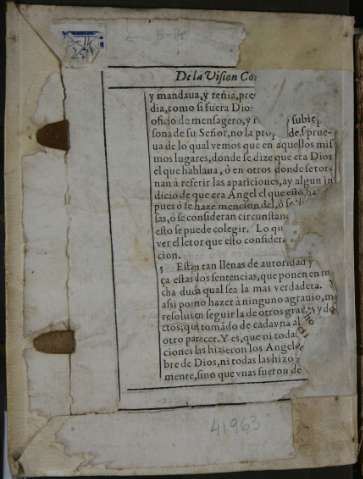 De la Vision Co
y mandaua, y reñia, pre
dia, como si fuera Dio
oficio de mensagero, y r subie
sona de su Señor, no la pro de, sprue
ua de lo qual vemos que en aquellos mis
mos lugares, donde se dize que era Dios
el que hablaua, ò en otros donde se tor
nan a referir las apariciones, ay algun in
dicio de que era Angel el que esto ha
pues ò se haze mencion del, ò se
las, ò se consideran circunstan
esto se puede colegir. Lo qu
ver el letor que esto considera
cion.
Estan tan llenas de autoridad y
ça estas dos sentencias, que ponen en m
cha duda qual sea la mas verdadera.
asi por no hazer a ninguno agrauio, m
resoluî en seguir la de otros graues y do
ctos, que tomãdo de cada vna al
otro parecer. Y es, que ni toda
ciones las hizieron los Angele
bre de Dios, ni todas las hizo
mente, sino que vnas fueron de
41963